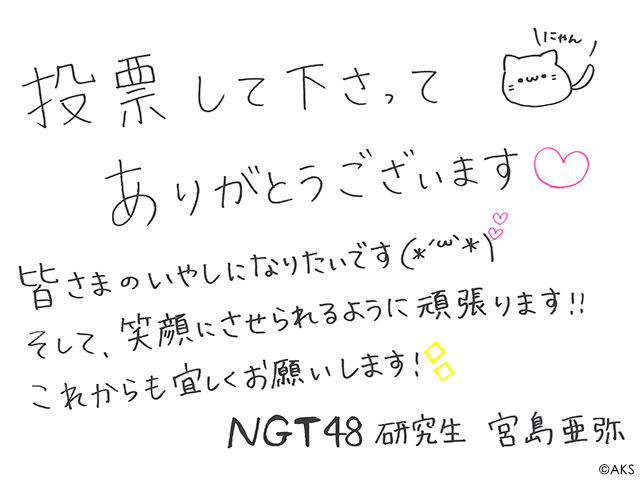 にゃん
投票して下さって
ありがとうございます♡
皆さまのいやしになりたいです(*´ω`*)
そして、笑顔にさせられるように頑張ります!!
これからも宜しくお願いします!
NGT48 研究生 宮島亜弥
©AKS